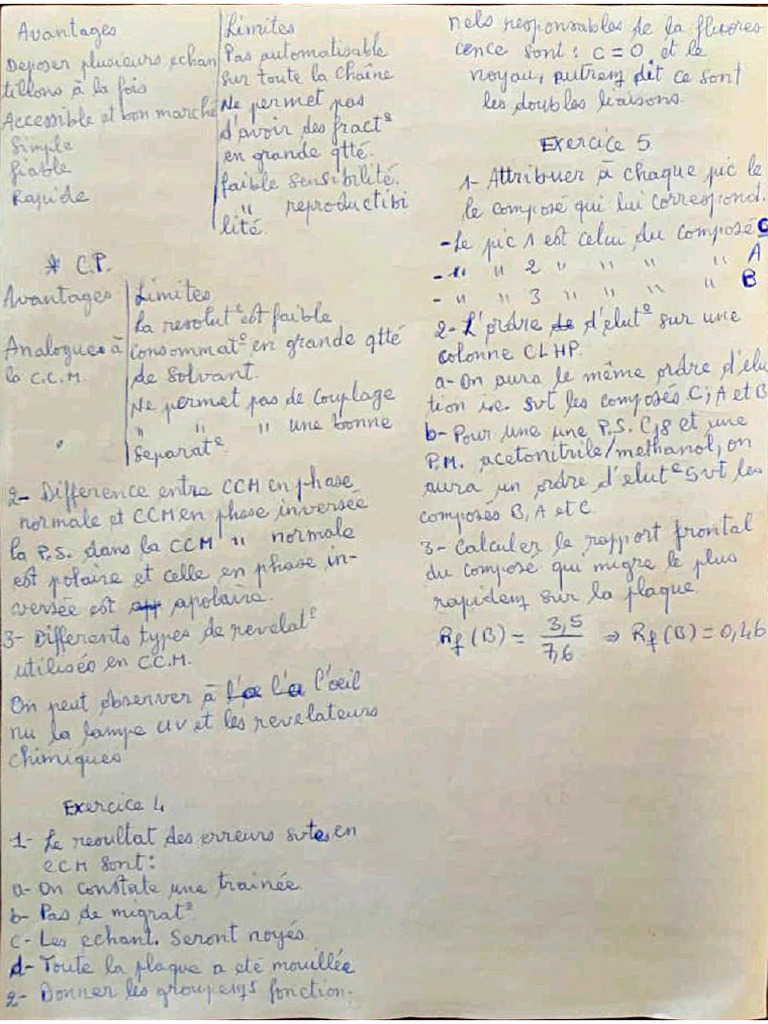 Avantages | Limites
Deposer plusieurs echan | Pas automatisable
tillons à la fois | sur toute la chaîne
Accessible et bon marché | Ne permet pas
Simple | d'avoir des fract°
fiable | en grande qtté.
Rapide | faible sensibilité.
" reproductibi
lité.
* C.P.
Avantages | Limites
La resolut° est faible
Analogues à | consommat° en grande qtté
la C.C.M. | de solvant.
Ne permet pas de couplage
" " " une bonne
separat°
2- Difference entre CCM en phase
normale et CCM en phase inversée
la P.S. dans la CCM " normale
est polaire et celle en phase in-
versée est app apolaire.
3- Differents types de revelat°
utilisés en C.C.M.
On peut observer à l'a l'a l'oeil
nu la lampe UV et les revelateurs
chimiques
Exercice 4
1- Le resultat des erreurs svtes en
CCM sont:
a- On constate une trainée
b- Pas de migrat°
c- Les echant. seront noyés
d- Toute la plaque a été mouillée
2- Donner les groupemts fonction-
nels responsables de la fluores
cence sont: C=O et le
noyau, autremt dit ce sont
les doubles liaisons.
Exercice 5
1- Attribuer à chaque pic le
le composé qui lui correspond.
- Le pic 1 est celui du composé C
- " " 2 " " " " A
- " " 3 " " " " B
2- L'ordre de d'elut° sur une
colonne CLHP.
a- On aura le même ordre d'élu
tion i.e. svt les composés C; A et B
b- Pour une une P.S. C18 et une
P.M. acetonitrile/methanol, on
aura un ordre d'elut° svt les
composés B, A et C.
3- Calculer le rapport frontal
du composé qui migre le plus
rapidemt sur la plaque.
Rf (B) = 3,5/7,6 ⇒ Rf (B) = 0,46